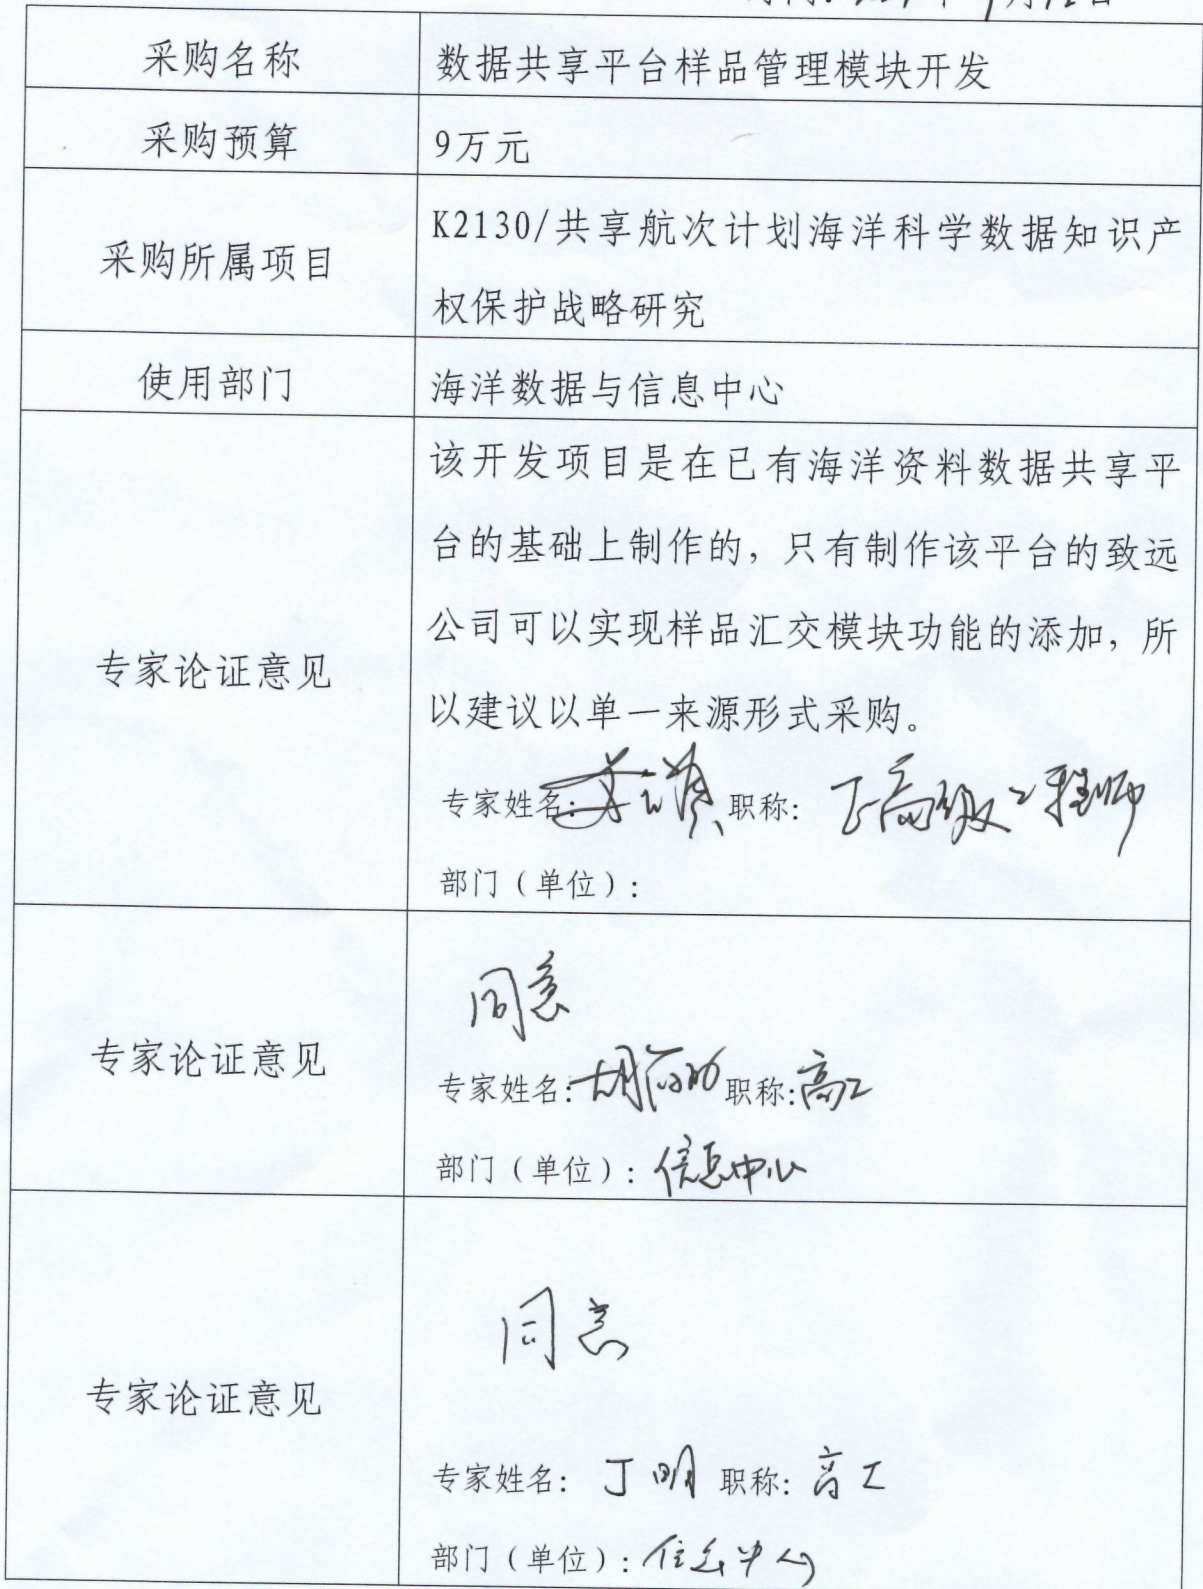 采购名称 数据共享平台样品管理模块开发
采购预算 9万元
采购所属项目 K2130/共享航次计划海洋科学数据知识产
权保护战略研究
使用部门 海洋数据与信息中心
专家论证意见 该开发项目是在已有海洋资料数据共享平
台的基础上制作的，只有制作该平台的致远
公司可以实现样品汇交模块功能的添加，所
以建议以单一来源形式采购。
专家姓名： 职称： 正高级工程师
部门（单位）：
专家论证意见 同意
专家姓名： 职称：高工
部门（单位）：信息中心
专家论证意见 同意
专家姓名： 丁明 职称：高工
部门（单位）：信息中心